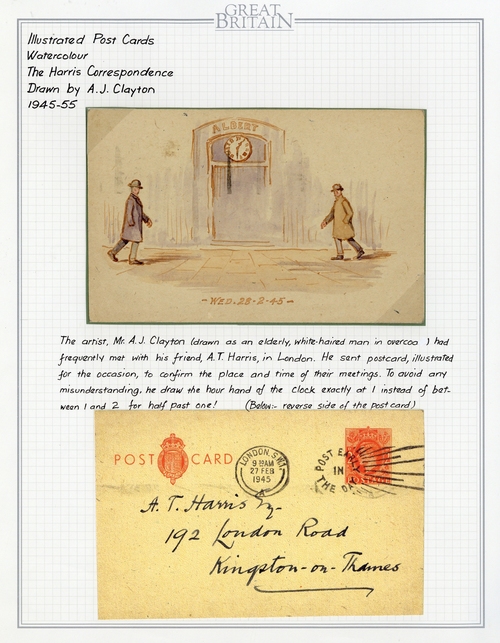 GREAT
BRITAIN
Illustrated Post Cards
Watercolour
The Harris Correspondence
Drawn by A.J. Clayton
1945-55
ALBERT
-WED. 28-2-45-
The artist, Mr. A.J. Clayton (drawn as an elderly, white-haired man in overcoa ) had
frequently met with his friend, A.T. Harris, in London. He sent postcard, illustrated
for the occasion, to confirm the place and time of their meetings. To avoid any
misunderstanding, he draw the hour hand of the clock exactly at 1 instead of bet-
ween 1 and 2 for half past one! (Below:- reverse side of the post card)
POST CARD
LONDON. S.W.1.
9 15AM
27 FEB
1945
POST EARLY
IN
THE DAY
A. T. Harris Esq-
192 London Road
Kingston-on-Thames